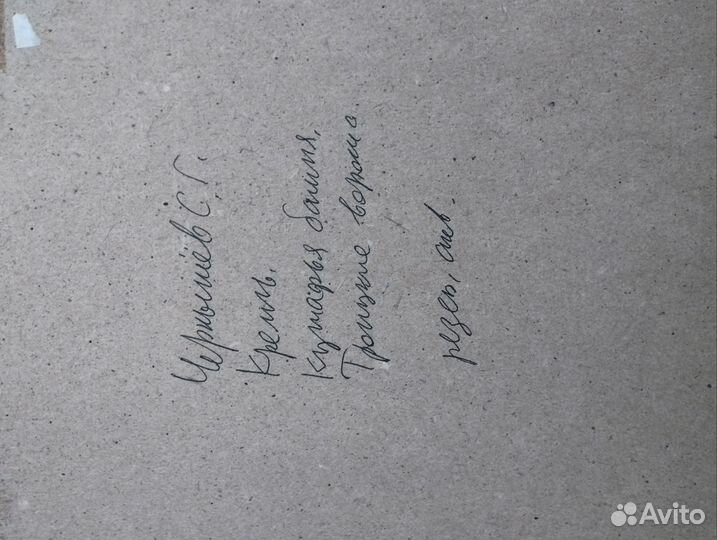 Чернышёв С.Г.
Кремль.
Кутафья башня,
Троицкие ворота.
резец, акв.
Avito